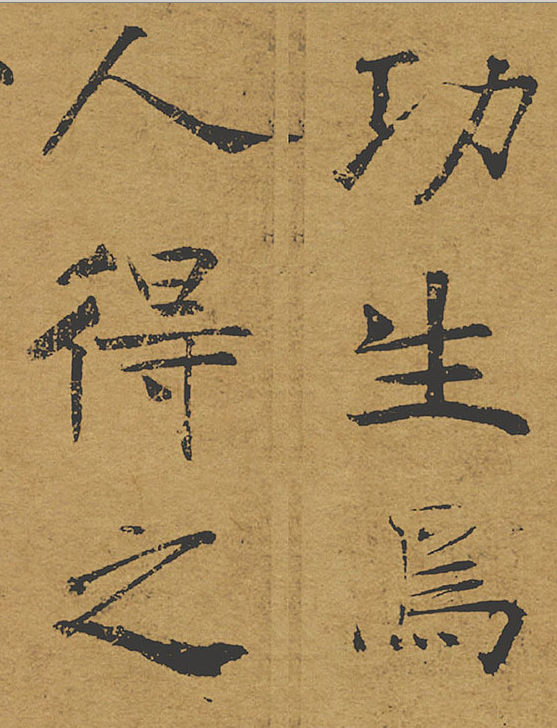 功生爲
人得之